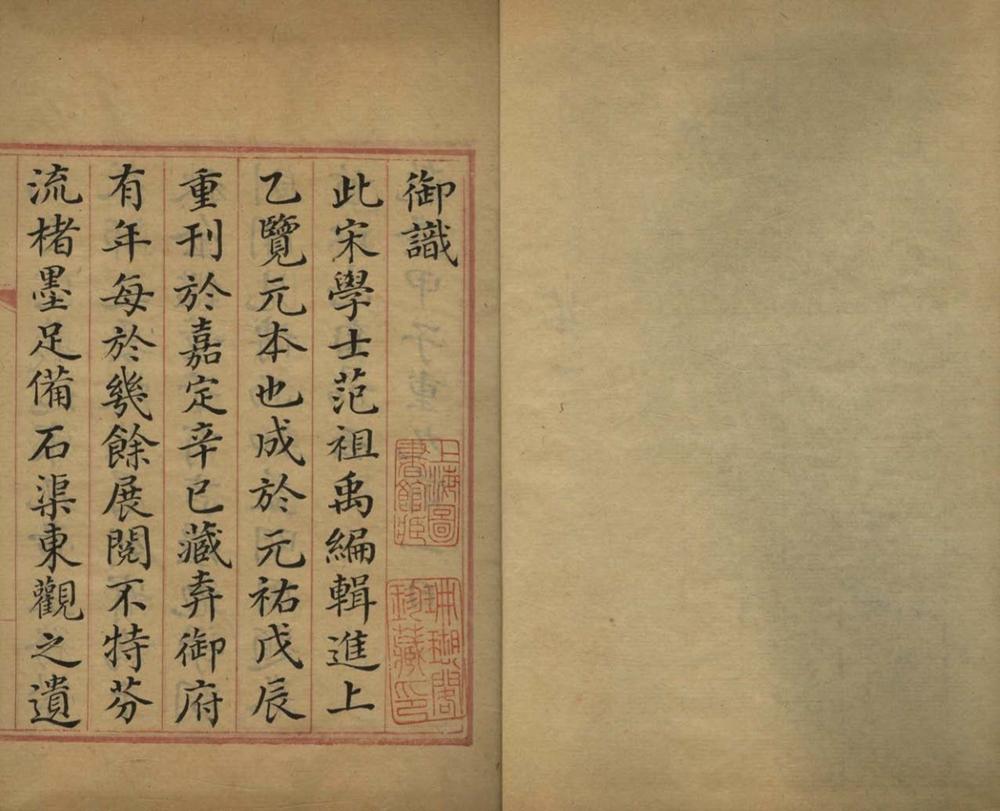 御識
此宋學士范祖禹編輯進上
乙覽元本也成於元祐戊辰
重刊於嘉定辛巳藏弆御府
有年每於幾餘展閱不特芬
流楮墨足備石渠東觀之遺
上海圖
書館臧
珊瑚閣
珍藏印